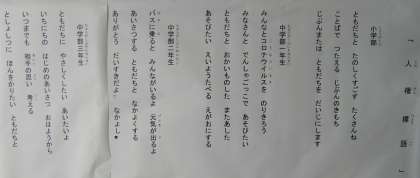 「人権標語」
小学部
ともだちと たのしくすごす たくさんね
ことばで つたえる じぶんのきもち
じぶんまたは ともだちを だいじにします
中学部一年生
みんなとコロナウイルスを のりきろう
みなさんと でんしゃごっこで あそびたい
ともだちと おかいものした またあした
あそびたい えいようたべる えがおにする
中学部二年生
バスに乗ると みんながいるよ 元気が出るよ
あいさつする ともだちと なかよくする
ありがとう だいすきだよ なかよし
中学部三年生
ともだちに やさしくしたい あいたいよ
いちにちの はじめのあいさつ おはようから
いつまでも 相手の思い 考える
としょしつに ほんをかりたい ともだちと